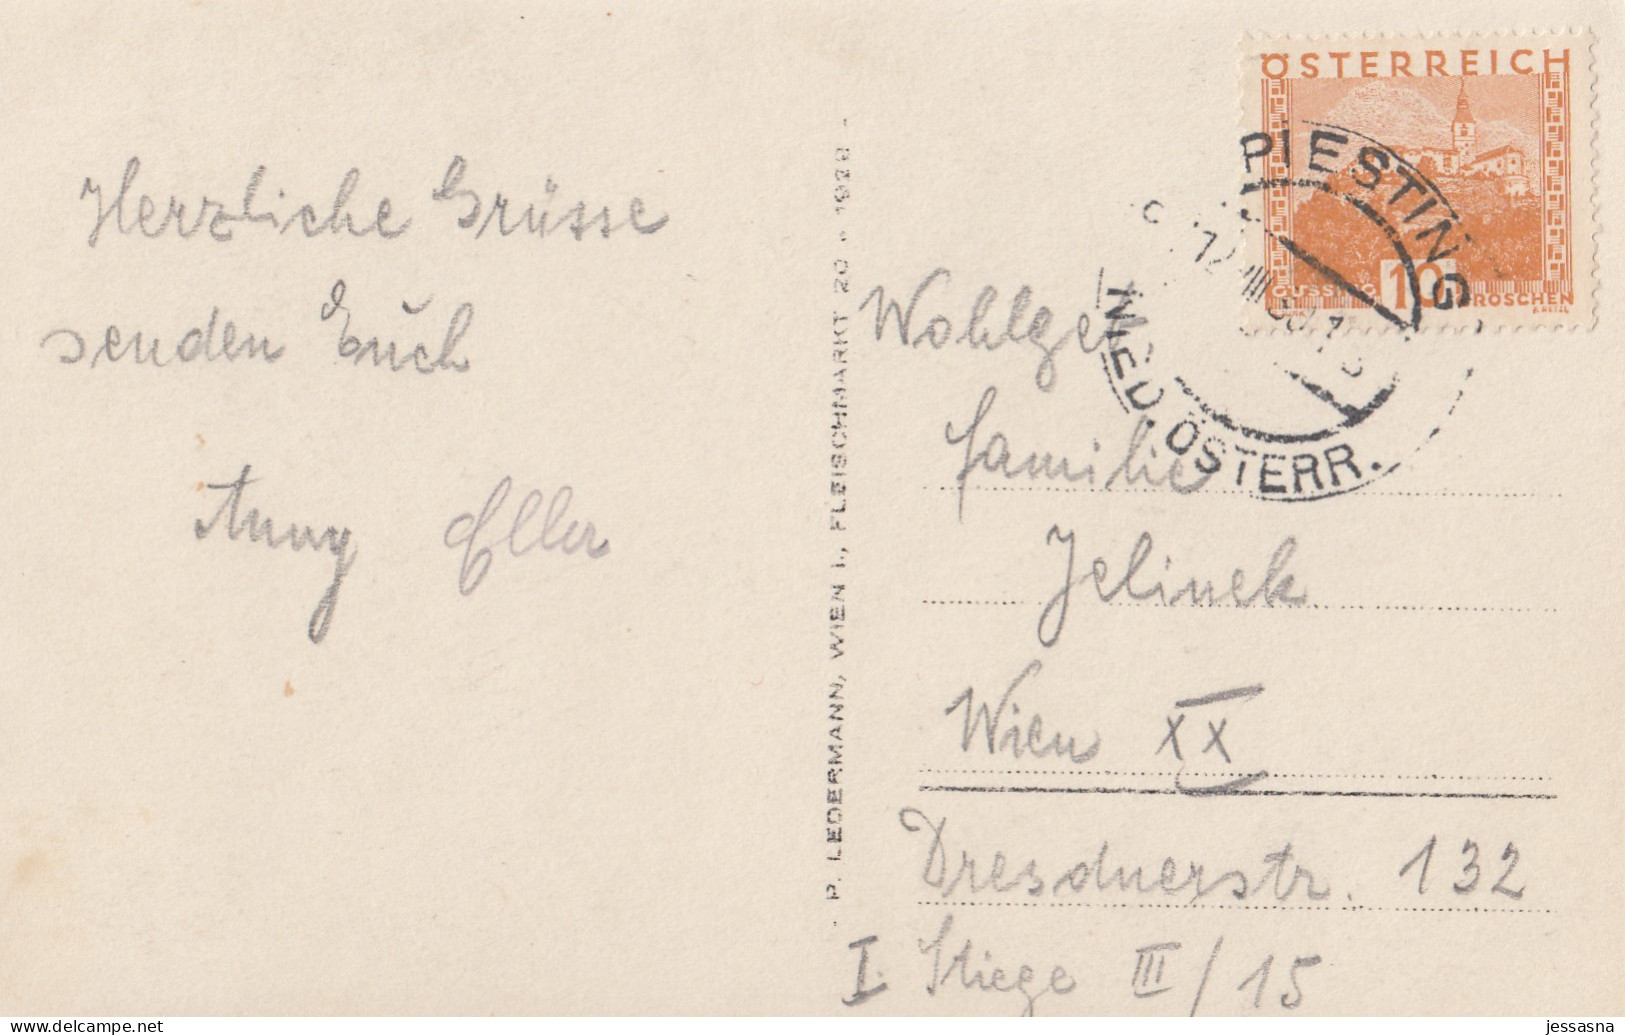 Herzliche Grüsse
senden Euch
Anny Eller
P. LEDERMANN, WIEN I., FLEISCHMARKT 20 . 1928
ÖSTERREICH
GÜSSING 10 GROSCHEN
PIESTING
NIED. ÖSTERR.
Wohlge
Familie
Jelinek
Wien XX
Dresdnerstr. 132
I. Stiege III/15
jessasna